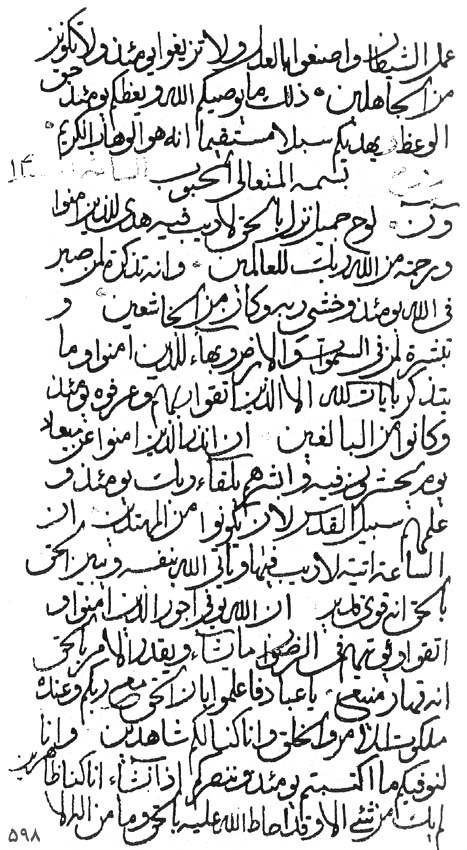 عمل الشيطان واصنعوا بالعدل ولا تزيغوا يومئذ ولا تكونن
من الجاهلين ذلك ما يوصيكم الله ويعظكم يومئذ حق
الوعظ ويهديكم سبيلا مستقيما انه هو الوهاب الكريم
بسمه المتعالى المحبوب
ون لوح جميل نزل بالحق لا ريب فيه هدى للذين امنوا
ورحمة من الله ربك للعالمين وانه تذكرة لمن صبر
فى الله يومئذ وخشى ربه وكان من الخاشعين و
تبشرة لمن فى السموات والارض وبهاء للذين امنوا وما
يتذكر بايات الله الا الذين اتقوا ربهم وعرفوه يومئذ
وكانوا من البالغين ان انذر الذين امنوا عن ميعاد
يوم يحشرون فيه وابشرهم بلقاء ربك يومئذ و
علمهم سبيل القدس لان يكونوا من المهتدين ان
الساعة اتية لا ريب فيها وياتى الله بنفسه ويبين الحق
بالحق انه قوى قدير ان الله يوفى اجور الذين امنوا و
اتقوا ويؤتيهم فى الرضوان ما يشاء ويقدر الامر بالحق
انه قهار منيع يا عباد فاعلموا بان الحق مع ربكم وعنده
ملكوت الامر والخلق وانا كنا لكم شاهدين وانا
لنوفيكم ما اكتسبتم يومئذ وننصركم اذا نشاء انا كنا ظاهرين
لم يك من شئ الا وقد احاط الله عليه بالحق وما من اله الا
٥٩٨